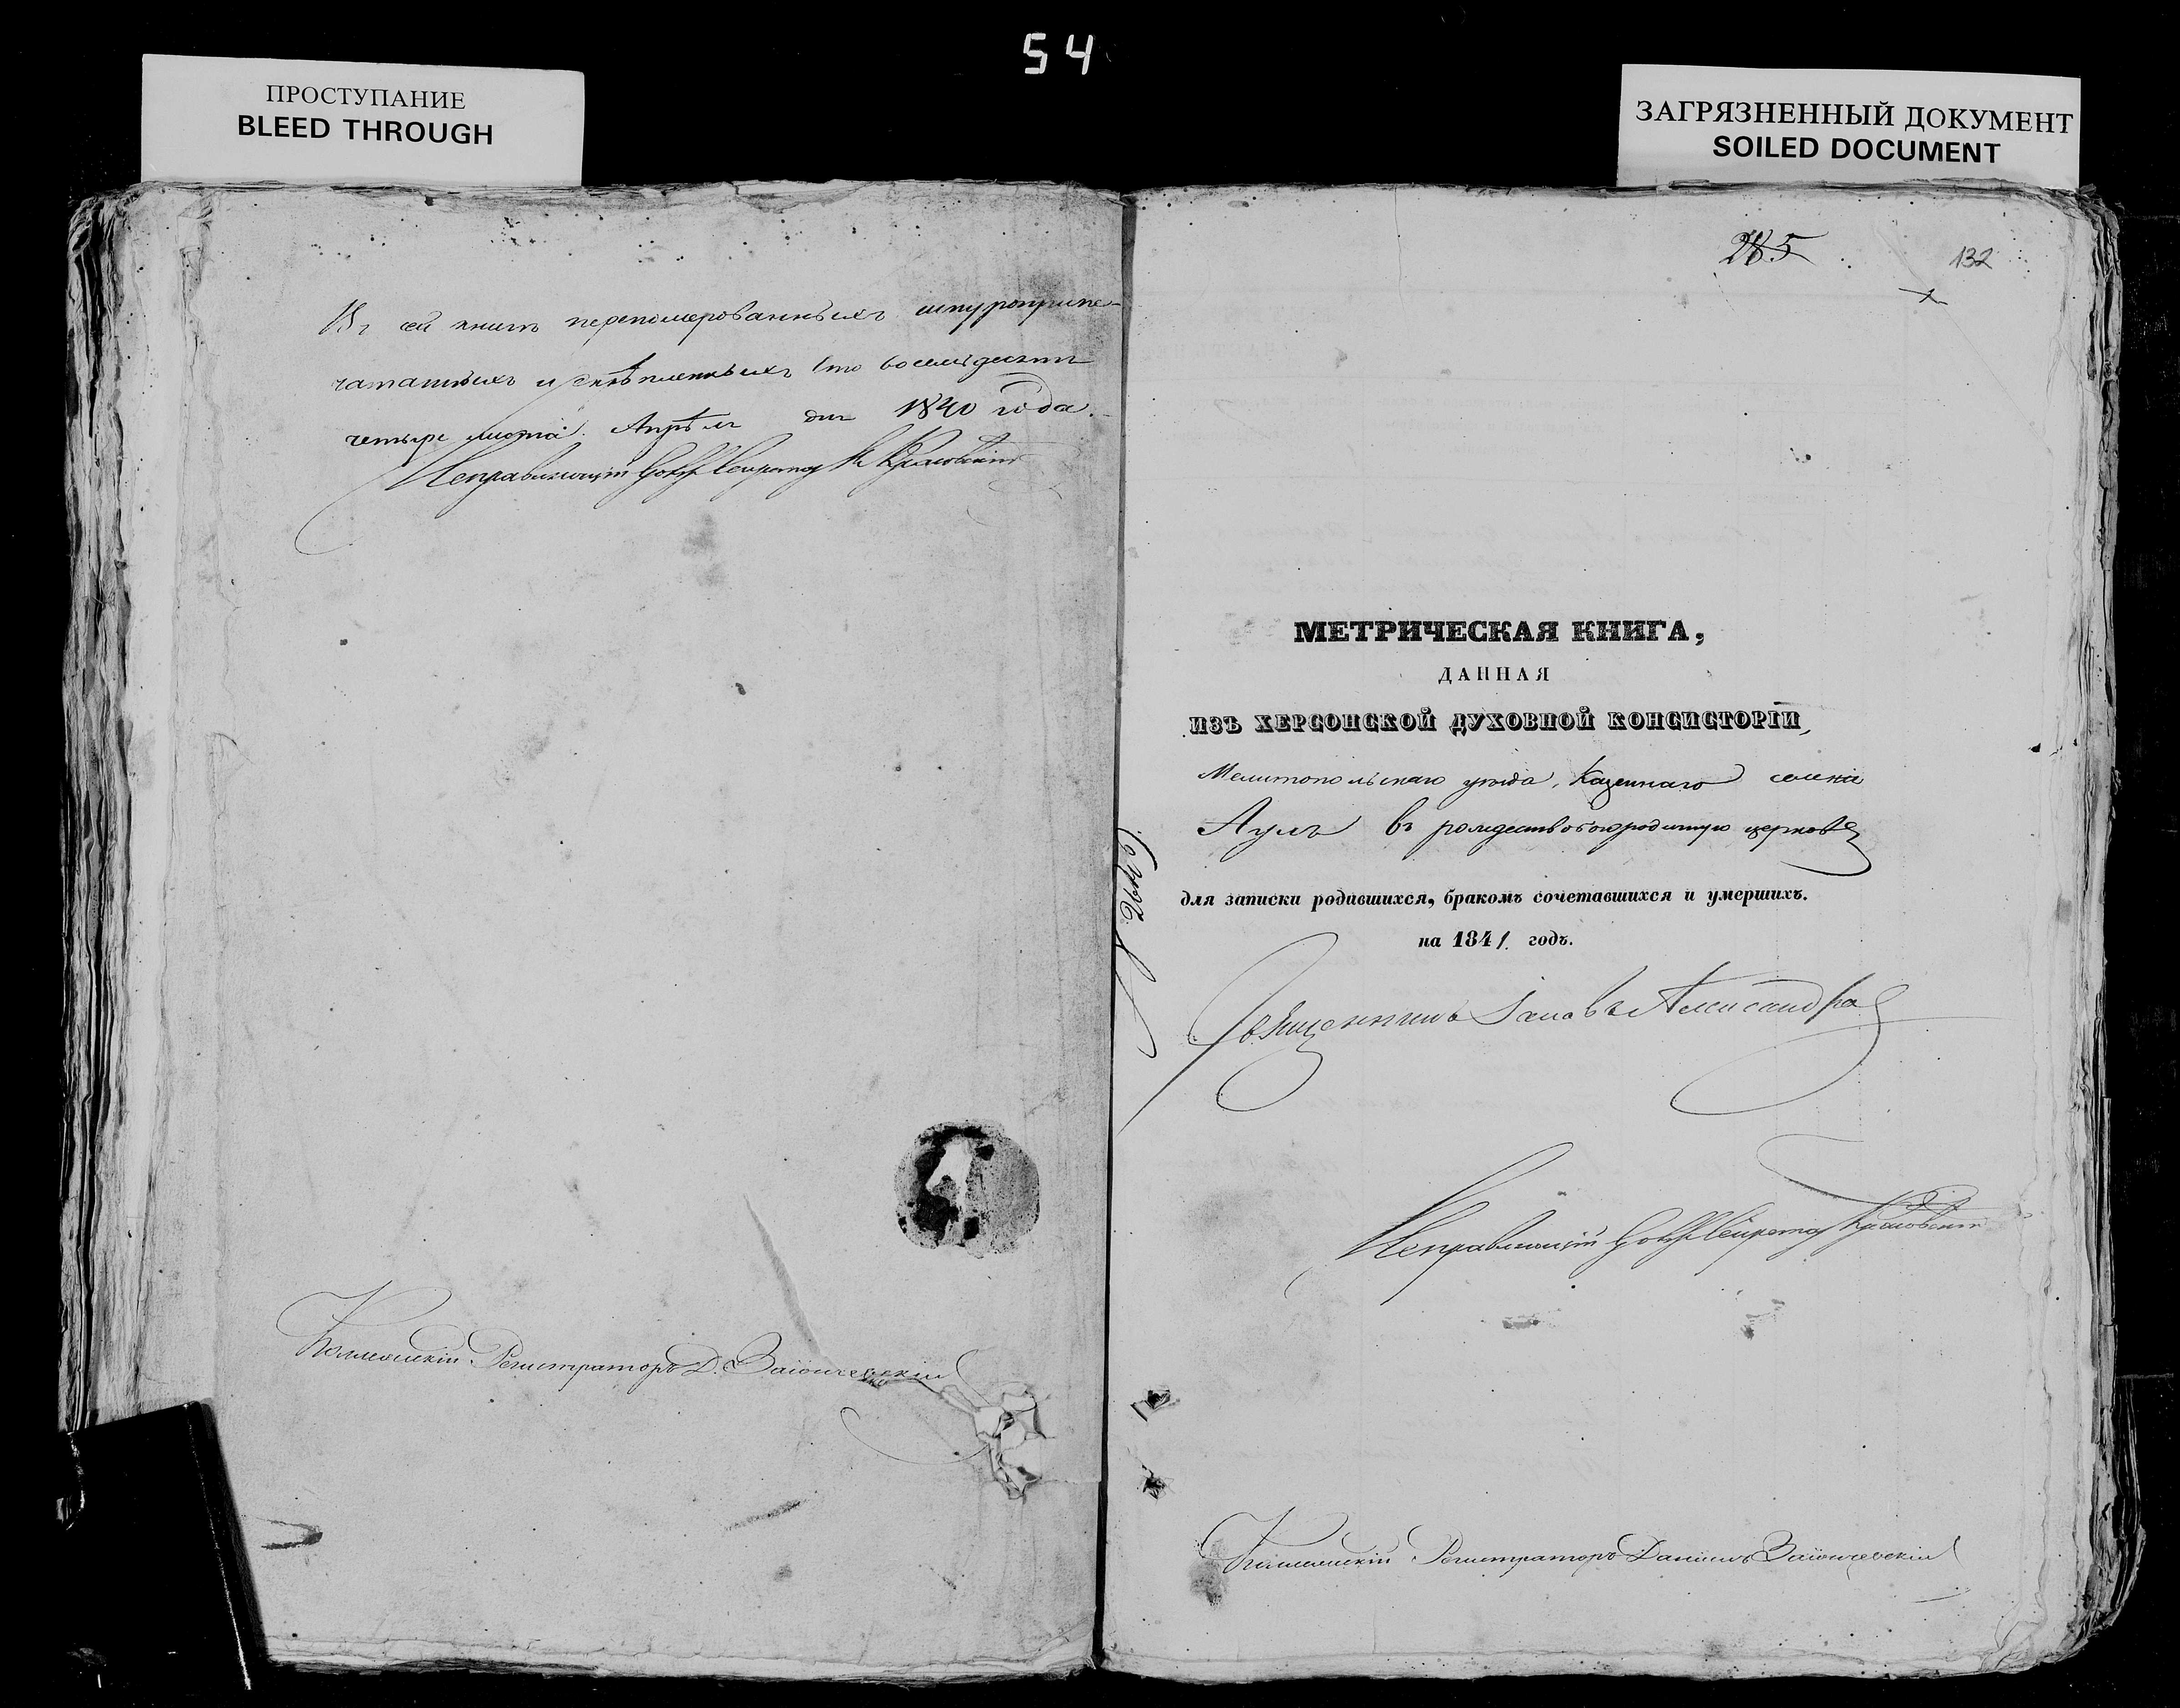 54
ПРОСТУПАНИЕ
BLEED THROUGH
ЗАГРЯЗНЕННЫЙ ДОКУМЕНТ
SOILED DOCUMENT
Въ сей книгѣ перенумерованныхъ шнуропripe-
чатанныхъ и скрѣпленныхъ сто восемьдесятъ
четыре листа. Апрѣля дня 1840 года.
Исправляющій Секретаря
Коллежскій Регистраторъ Д. Заіончевскій
285
132
МЕТРИЧЕСКАЯ КНИГА,
ДАННАЯ
ИЗЪ ХЕРСОНСКОЙ ДУХОВНОЙ КОНСИСТОРІИ,
Мелитопольскаго уѣзда, Казеннаго селенія
Аулъ въ рождествобогородичную церковь
для записки родившихся, бракомъ сочетавшихся и умершихъ.
на 1841 годъ.
Священникъ Іаковъ Александра
Исправляющій Секретаря
Коллежскій Регистраторъ Даніилъ Заіончевскій